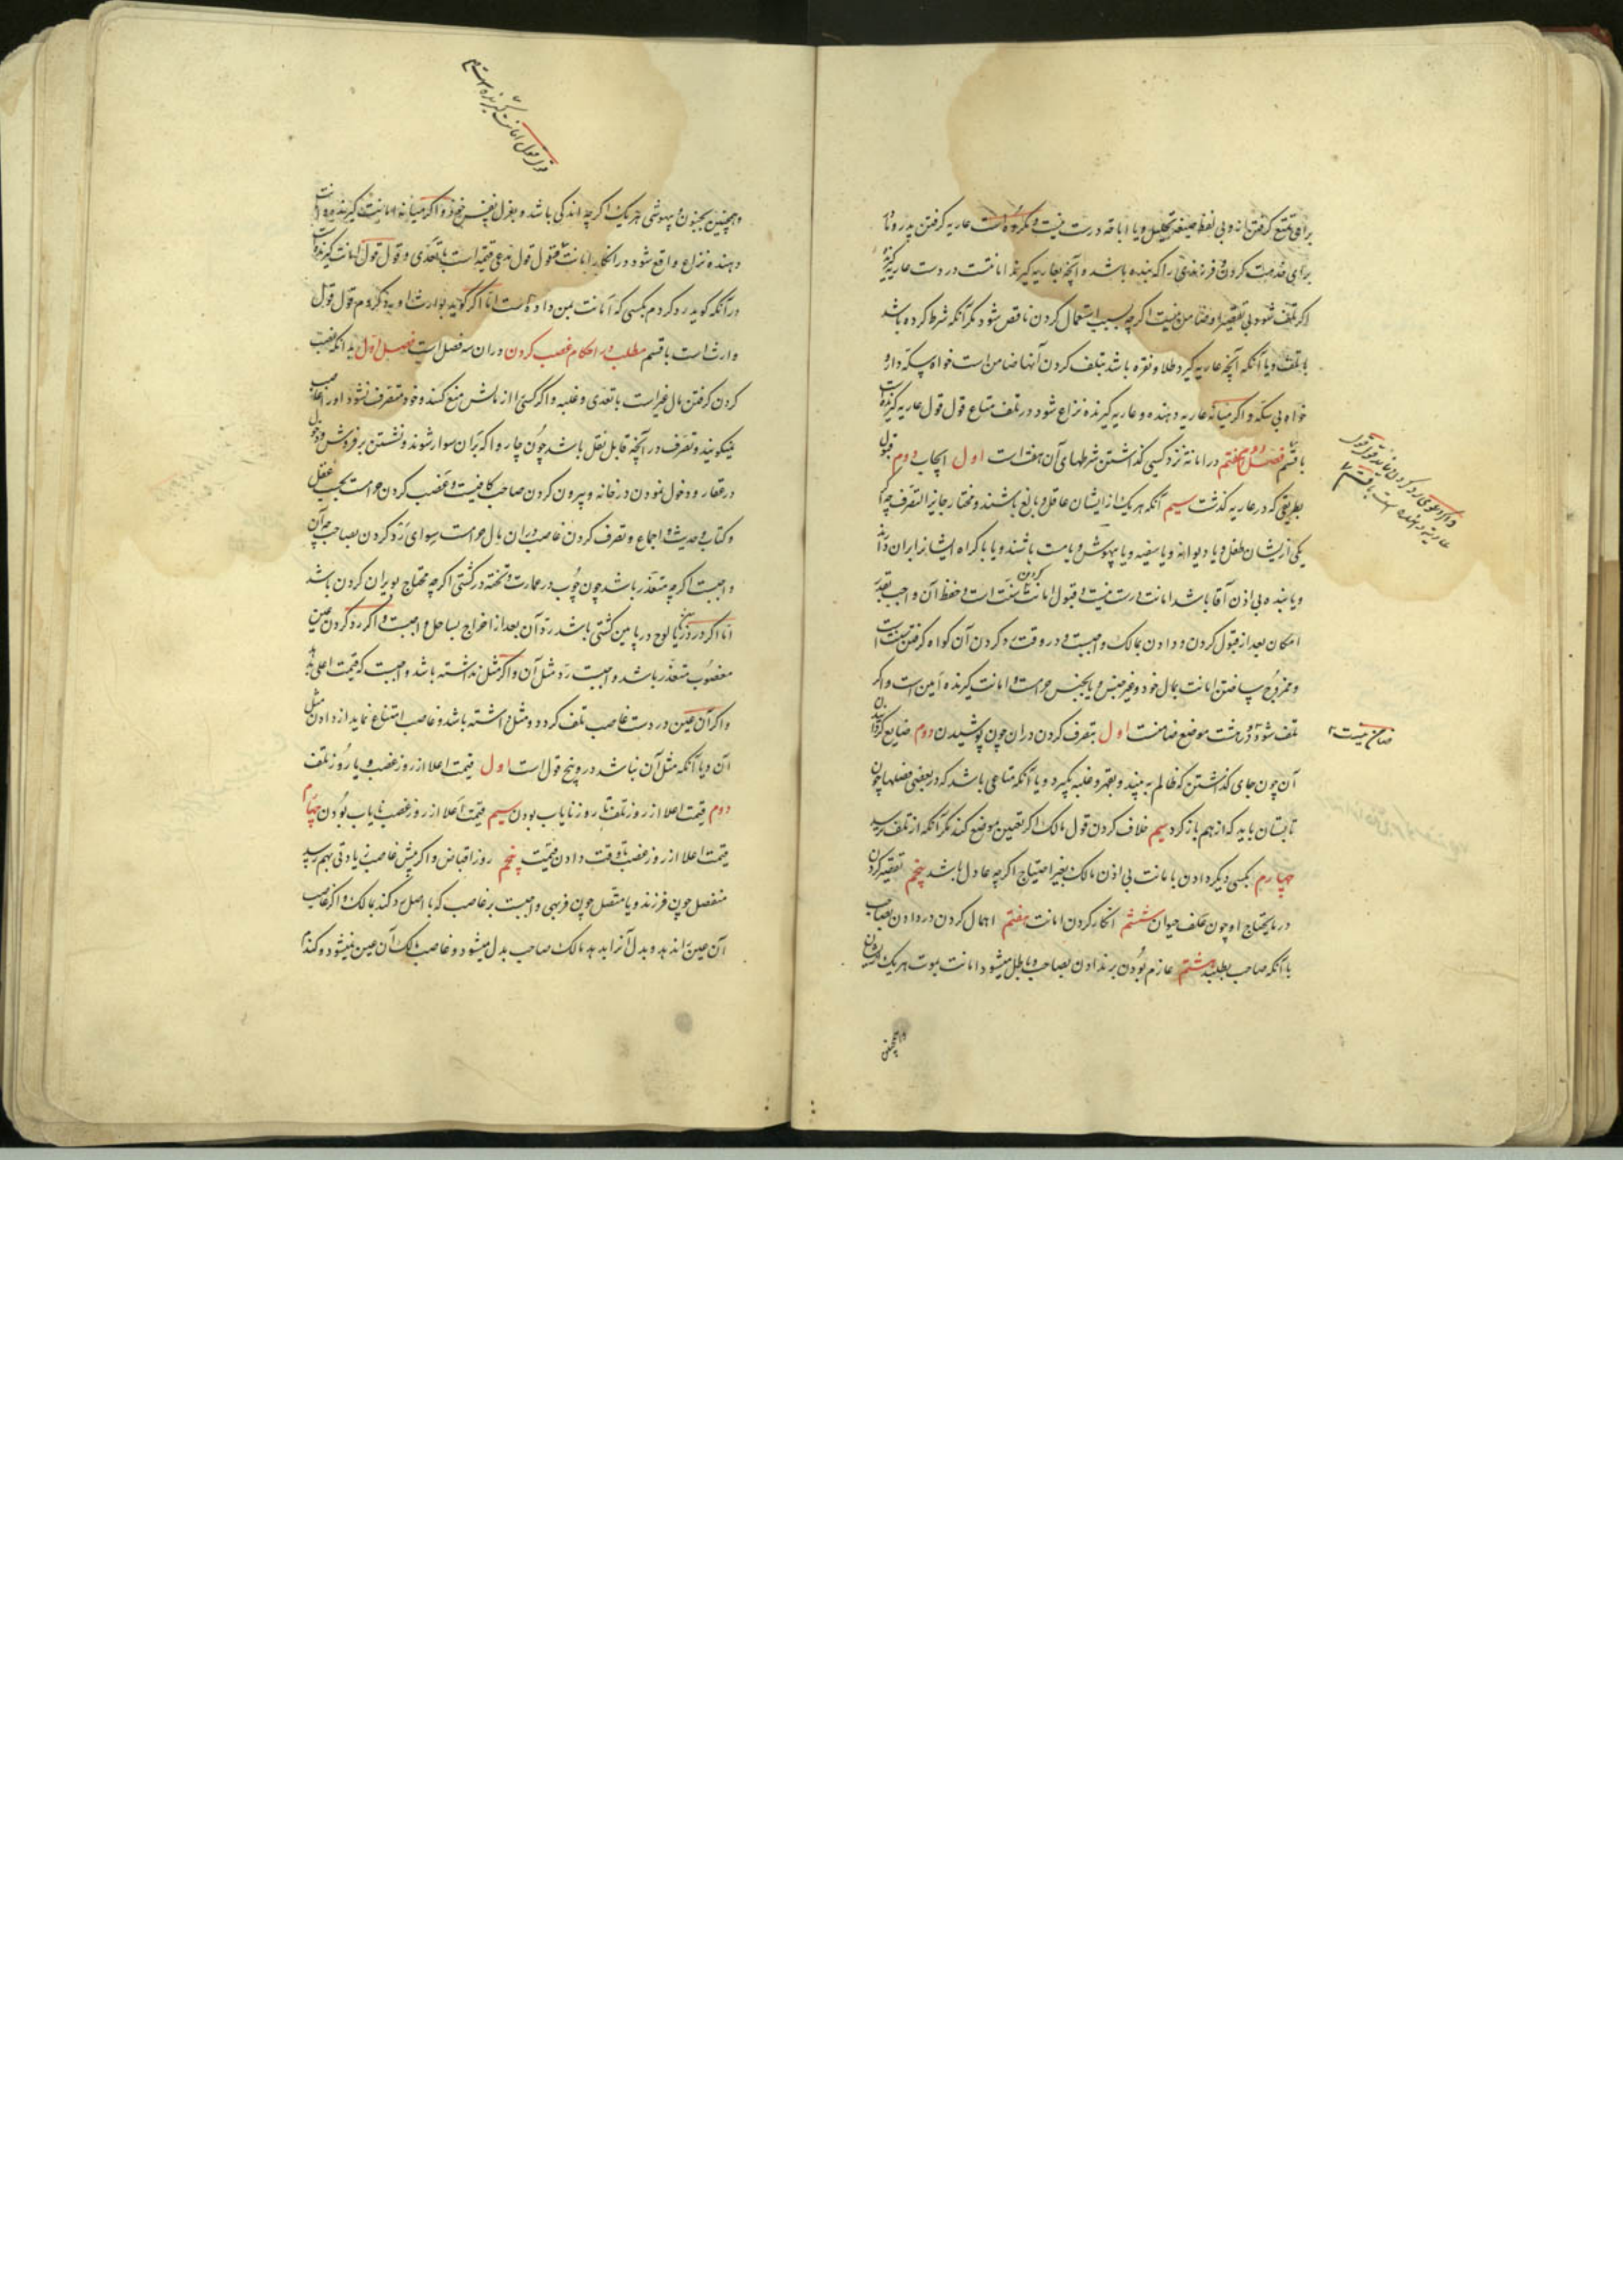 برای تمتع کرفتن نه و بی لفظ صیغه تحلیل و یا اباحه درست نیست و مکروه است عاریه کرفتن پدر و
برای خدمت کردن فرزندی را که بنده باشد و آنچه بعاریه کیرند امانتست در دست عاریه کیرنده
اکر تلف شود بی تقصیر او ضامن نیست اکر چه بسبب استعمال کردن ناقص شود مکر آنکه شرط کرده باشد
تلف و یا آنکه آنچه عاریه کیرد طلا و نقره باشد بتلف کردن آنها ضامن است خواه سکه دار و
خواه بی سکه و اکر میانه عاریه دهنده و عاریه کیرنده نزاع شود در تلف متاع قول قول عاریه کیرنده است
با قسم فصل هفتم در امانة نزد کسی کذاشتن شرطهای آن هفت است اول ایجاب دوم قبول
بطریقی که در عاریه کذشت سیم آنکه هر یک از ایشان عاقل و بالغ باشند و مختار جایز التصرف چه اکر
یکی از یشان طفل و یا دیوانه و یا سفیه و یا بیهوش و یا مست باشند و یا باکراه ایشانرا بران دارند
و یا بنده بی اذن آقا باشد امانت درست نیست و قبول امانت کردن سنت است و حفظ آن واجب بقدر
امکان بعد از قبول کردن و دادن بمالک واجبست و در وقت رد کردن آن کواه کرفتن سنت است
و ممزوج ساختن امانت بمال خود و غیر جنس و یا بجنس حرامست و امانت کیرنده امین است و اکر
تلف شود در هشت موضع ضامنست اول بتصرف کردن دران چون پوشیدن دوم ضایع کردن
آن چون جای کذاشتن که ظالم به بیند و بقهر و غلبه بکیرد و یا آنکه متاعی باشد که در بعضی فصلها چون
تابستان باید که از هم باز کرد سیم خلاف کردن قول مالک اکر تعیین موضع کند مکر آنکه از تلف ترسد
چهارم بکسی دیکر دادن با مانت بی اذن مالک بغیر احتیاج اکر چه عادل باشد پنجم تقصیر کردن
در مایحتاج او چون علف حیوان ششم انکار کردن امانت هفتم اهمال کردن در دادن بصاحب
با آنکه صاحب بطلبد هشتم عازم بودن بر ندادن بصاحب و باطل میشود امانت بموت هر یک از ایشان
و همچنین
ضامن نیست
و همچنین بجنون و بیهوشی هر یک اکر چه اندکی باشد و بعزل نفس خود و اکر میانه امانت کیرنده و امانت
دهنده نزاع واقع شود در انکار امانت قول قول مدعی قیمتست با تعدی و قول قول امانت کیرنده
در آنکه کوید رد کردم بکسی که امانت بمن داده است اما اکر کوید بوارث او رد کردم قول قول
وارث است با قسم مطلب در احکام غصب کردن دران سه فصل است فصل اول بدانکه غصب
کردن کرفتن مال غیر است با تعدی و غلبه و اکر کسی را از مالش منع کنند و خود متصرف نشود او را غاصب
نمیکویند و تصرف در آنچه قابل نقل باشد چون چاروا که بران سوار شوند و نشستن بر فروش و دخول
در عقار و دخول نمودن در خانه و بیرون کردن صاحب کافیست و غصب کردن حرامست بحسب عقل
و کتاب و حدیث و اجماع و تصرف کردن غاصب دران مال حرامست سوای رد کردن بصاحب چه آن
واجبست اکر چه متعذر باشد چون چوب در عمارت و تخته در کشتی اکر چه محتاج بویران کردن باشد
اما اکر در دریا لوح در پایین کشتی باشد رد آن بعد از اخراج بساحل واجبست و اکر رد کردن عین
مغصوب متعذر باشد واجبست رد مثل آن و اکر مثل نداشته باشد واجبست که قیمت اعلی بدهد
و اکر آن عین در دست غاصب تلف کردد و مثل داشته باشد و غاصب امتناع نماید از دادن مثل
آن و یا آنکه مثل آن نباشد در و پنج قول است اول قیمت اعلا از روز غصب و یا روز تلف
دوم قیمت اعلا از روز تلف تا روز نایاب بودن سیم قیمت اعلا از روز غصب نایاب بودن چهارم
قیمت اعلا از روز غصب تا وقت دادن قیمت پنجم روز اقباض و اکر پیش غاصب زیادتی بهم رسد
منفصل چون فرزند و یا متصل چون فربهی واجبست بر غاصب که با اصل رد کند بمالک و اکر غاصب
آن عین را ندهد و بدل آنرا بدهد مالک صاحب بدل میشود و غاصب مالک آن عین نمیشود و کذا